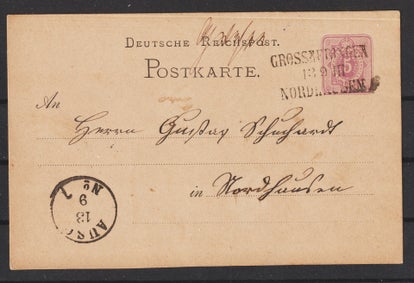 DEUTSCHE REICHSPOST.
POSTKARTE.
NORDHAUSEN
13 9 III
An
Herrn Gustav Schuchardt
in Nordhausen
AUSG
13
9
No 1